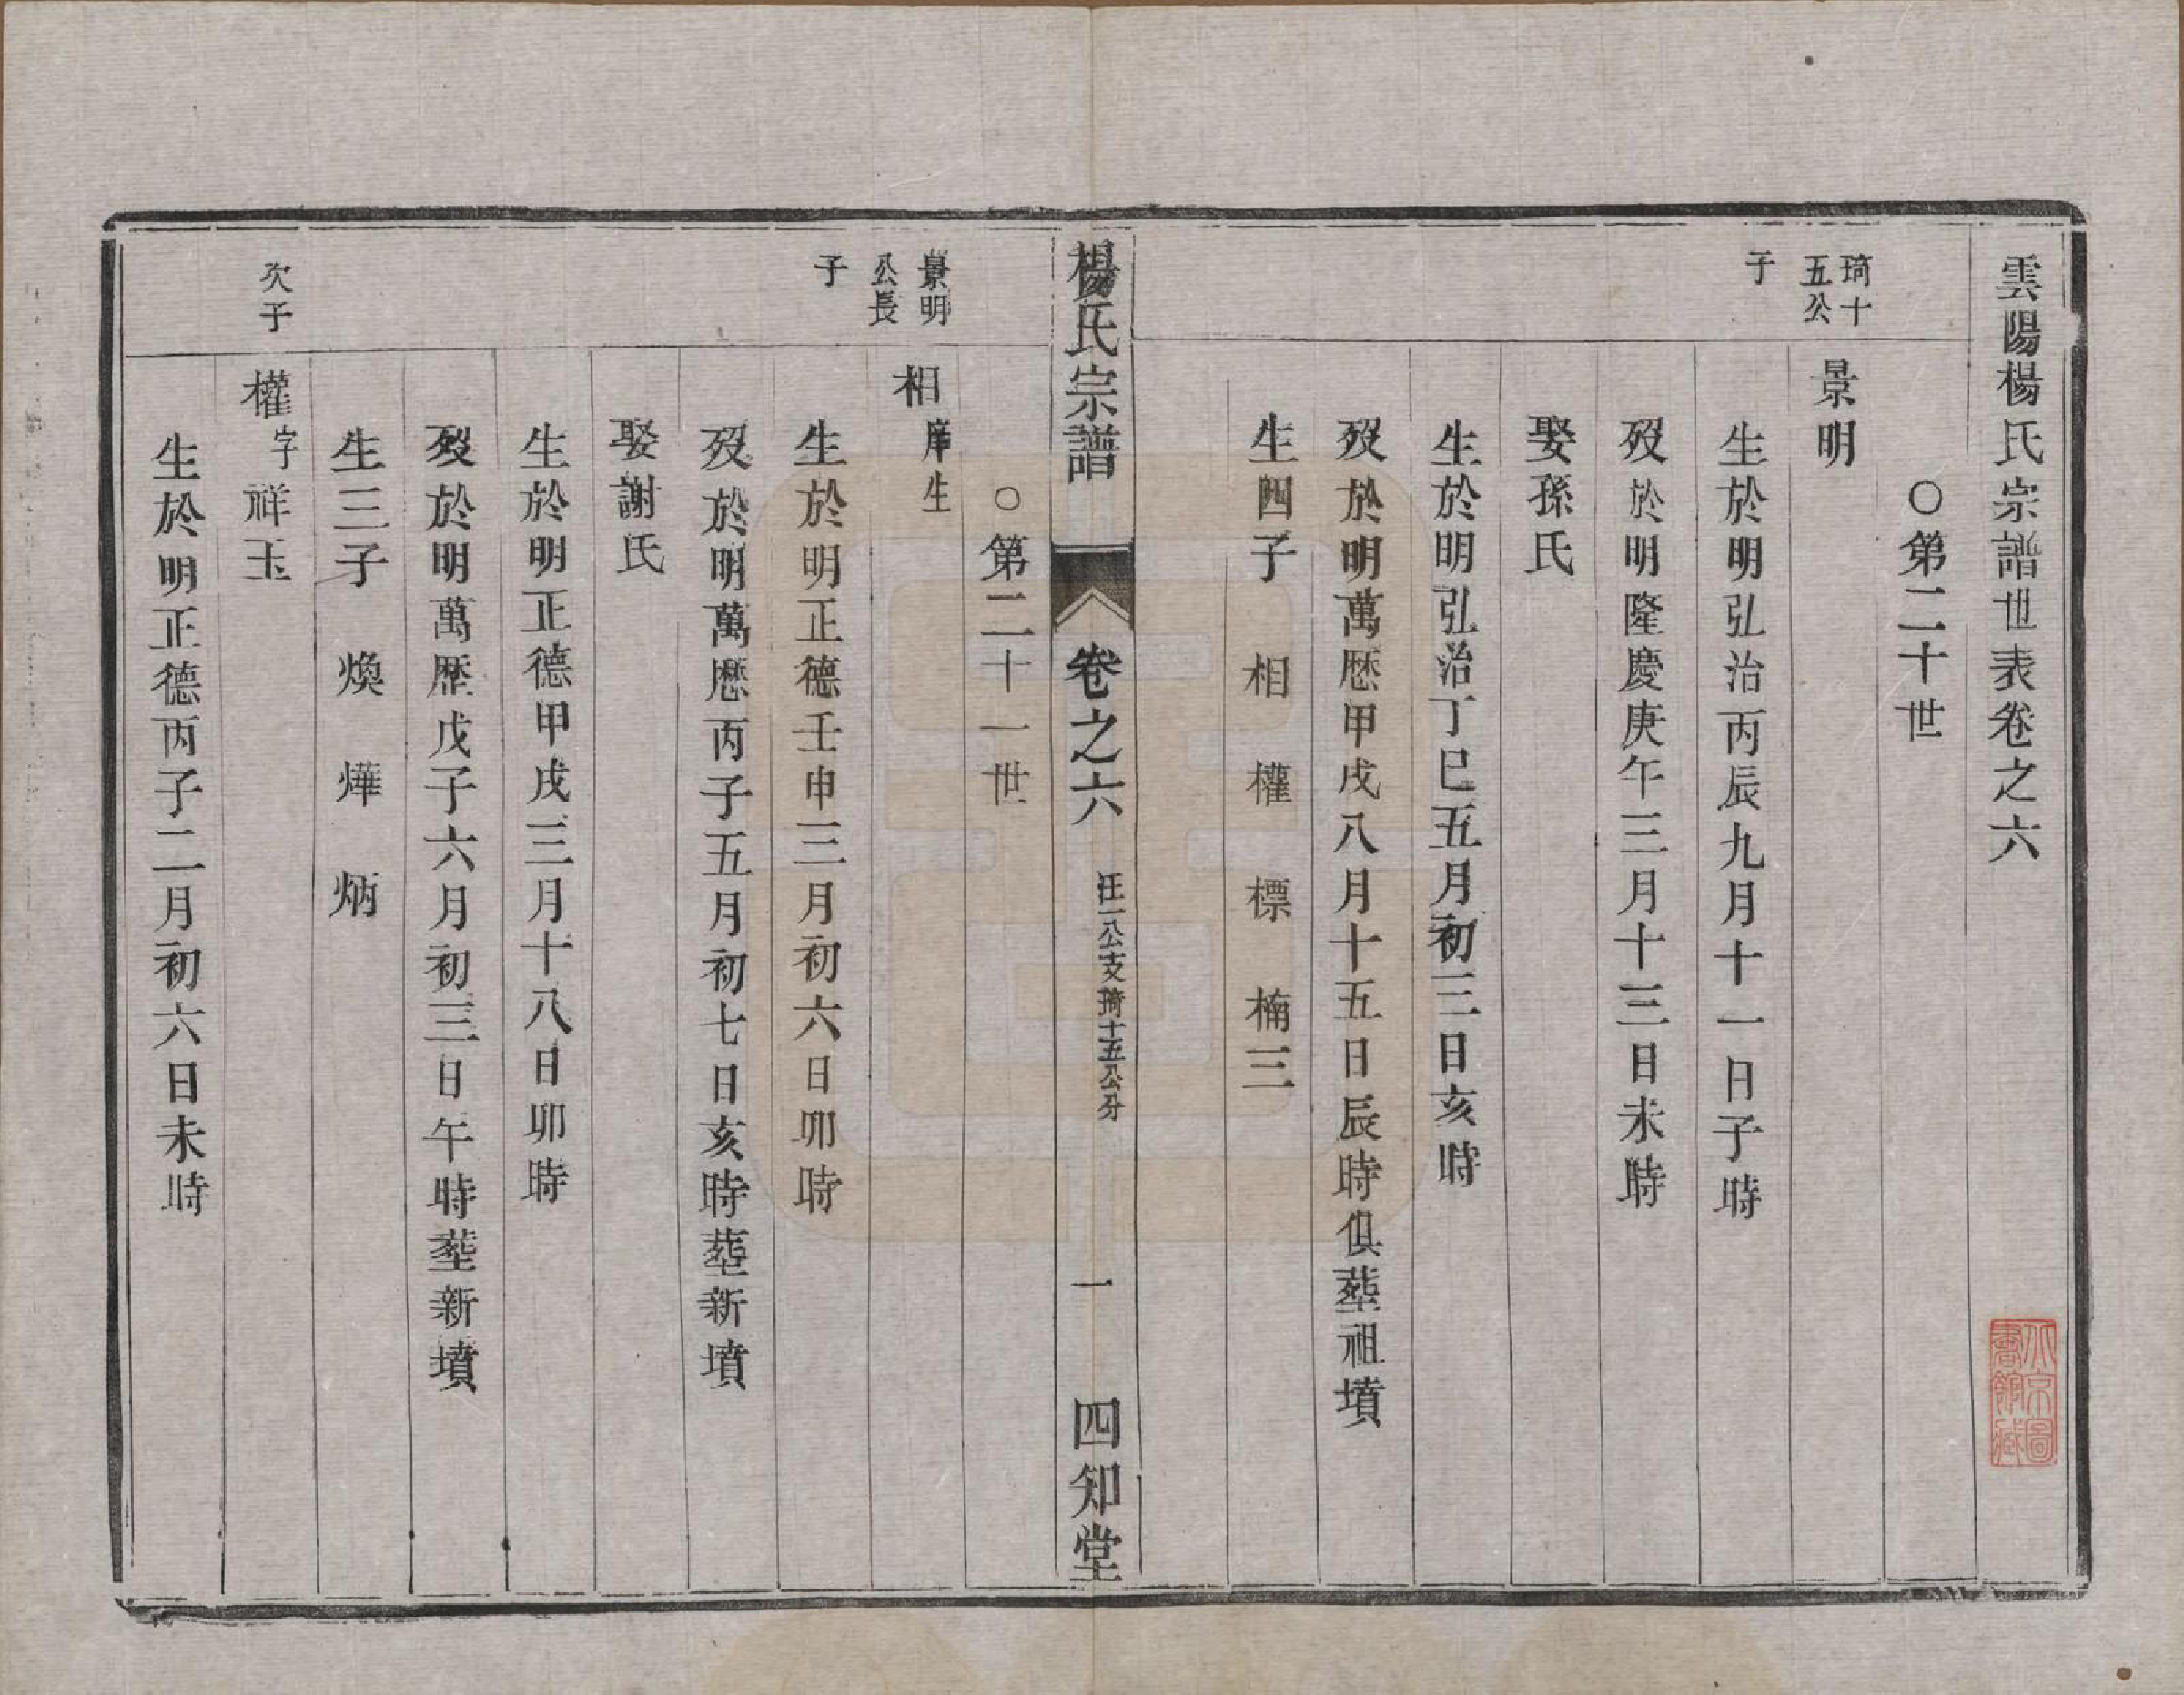 雲陽楊氏宗譜世表卷之六
○第二十世
琦十五公子
景明
生於明弘治丙辰九月十一日子時
歿於明隆慶庚午三月十三日未時
娶孫氏
生於明弘治丁巳五月初三日亥時
歿於明萬歷甲戌八月十五日辰時俱塟祖墳
生四子 相 權 標 楠三
楊氏宗譜 卷之六 汪一公支琦十五公分 一 四知堂
○第二十一世
景明公長子
相庠生
生於明正德壬申三月初六日卯時
歿於明萬歷丙子五月初七日亥時塟新墳
娶謝氏
生於明正德甲戌三月十八日卯時
歿於明萬歷戊子六月初三日午時塟新墳
生三子 煥 燁 炳
次子
權字祥玉
生於明正德丙子二月初六日未時
北京圖書館藏